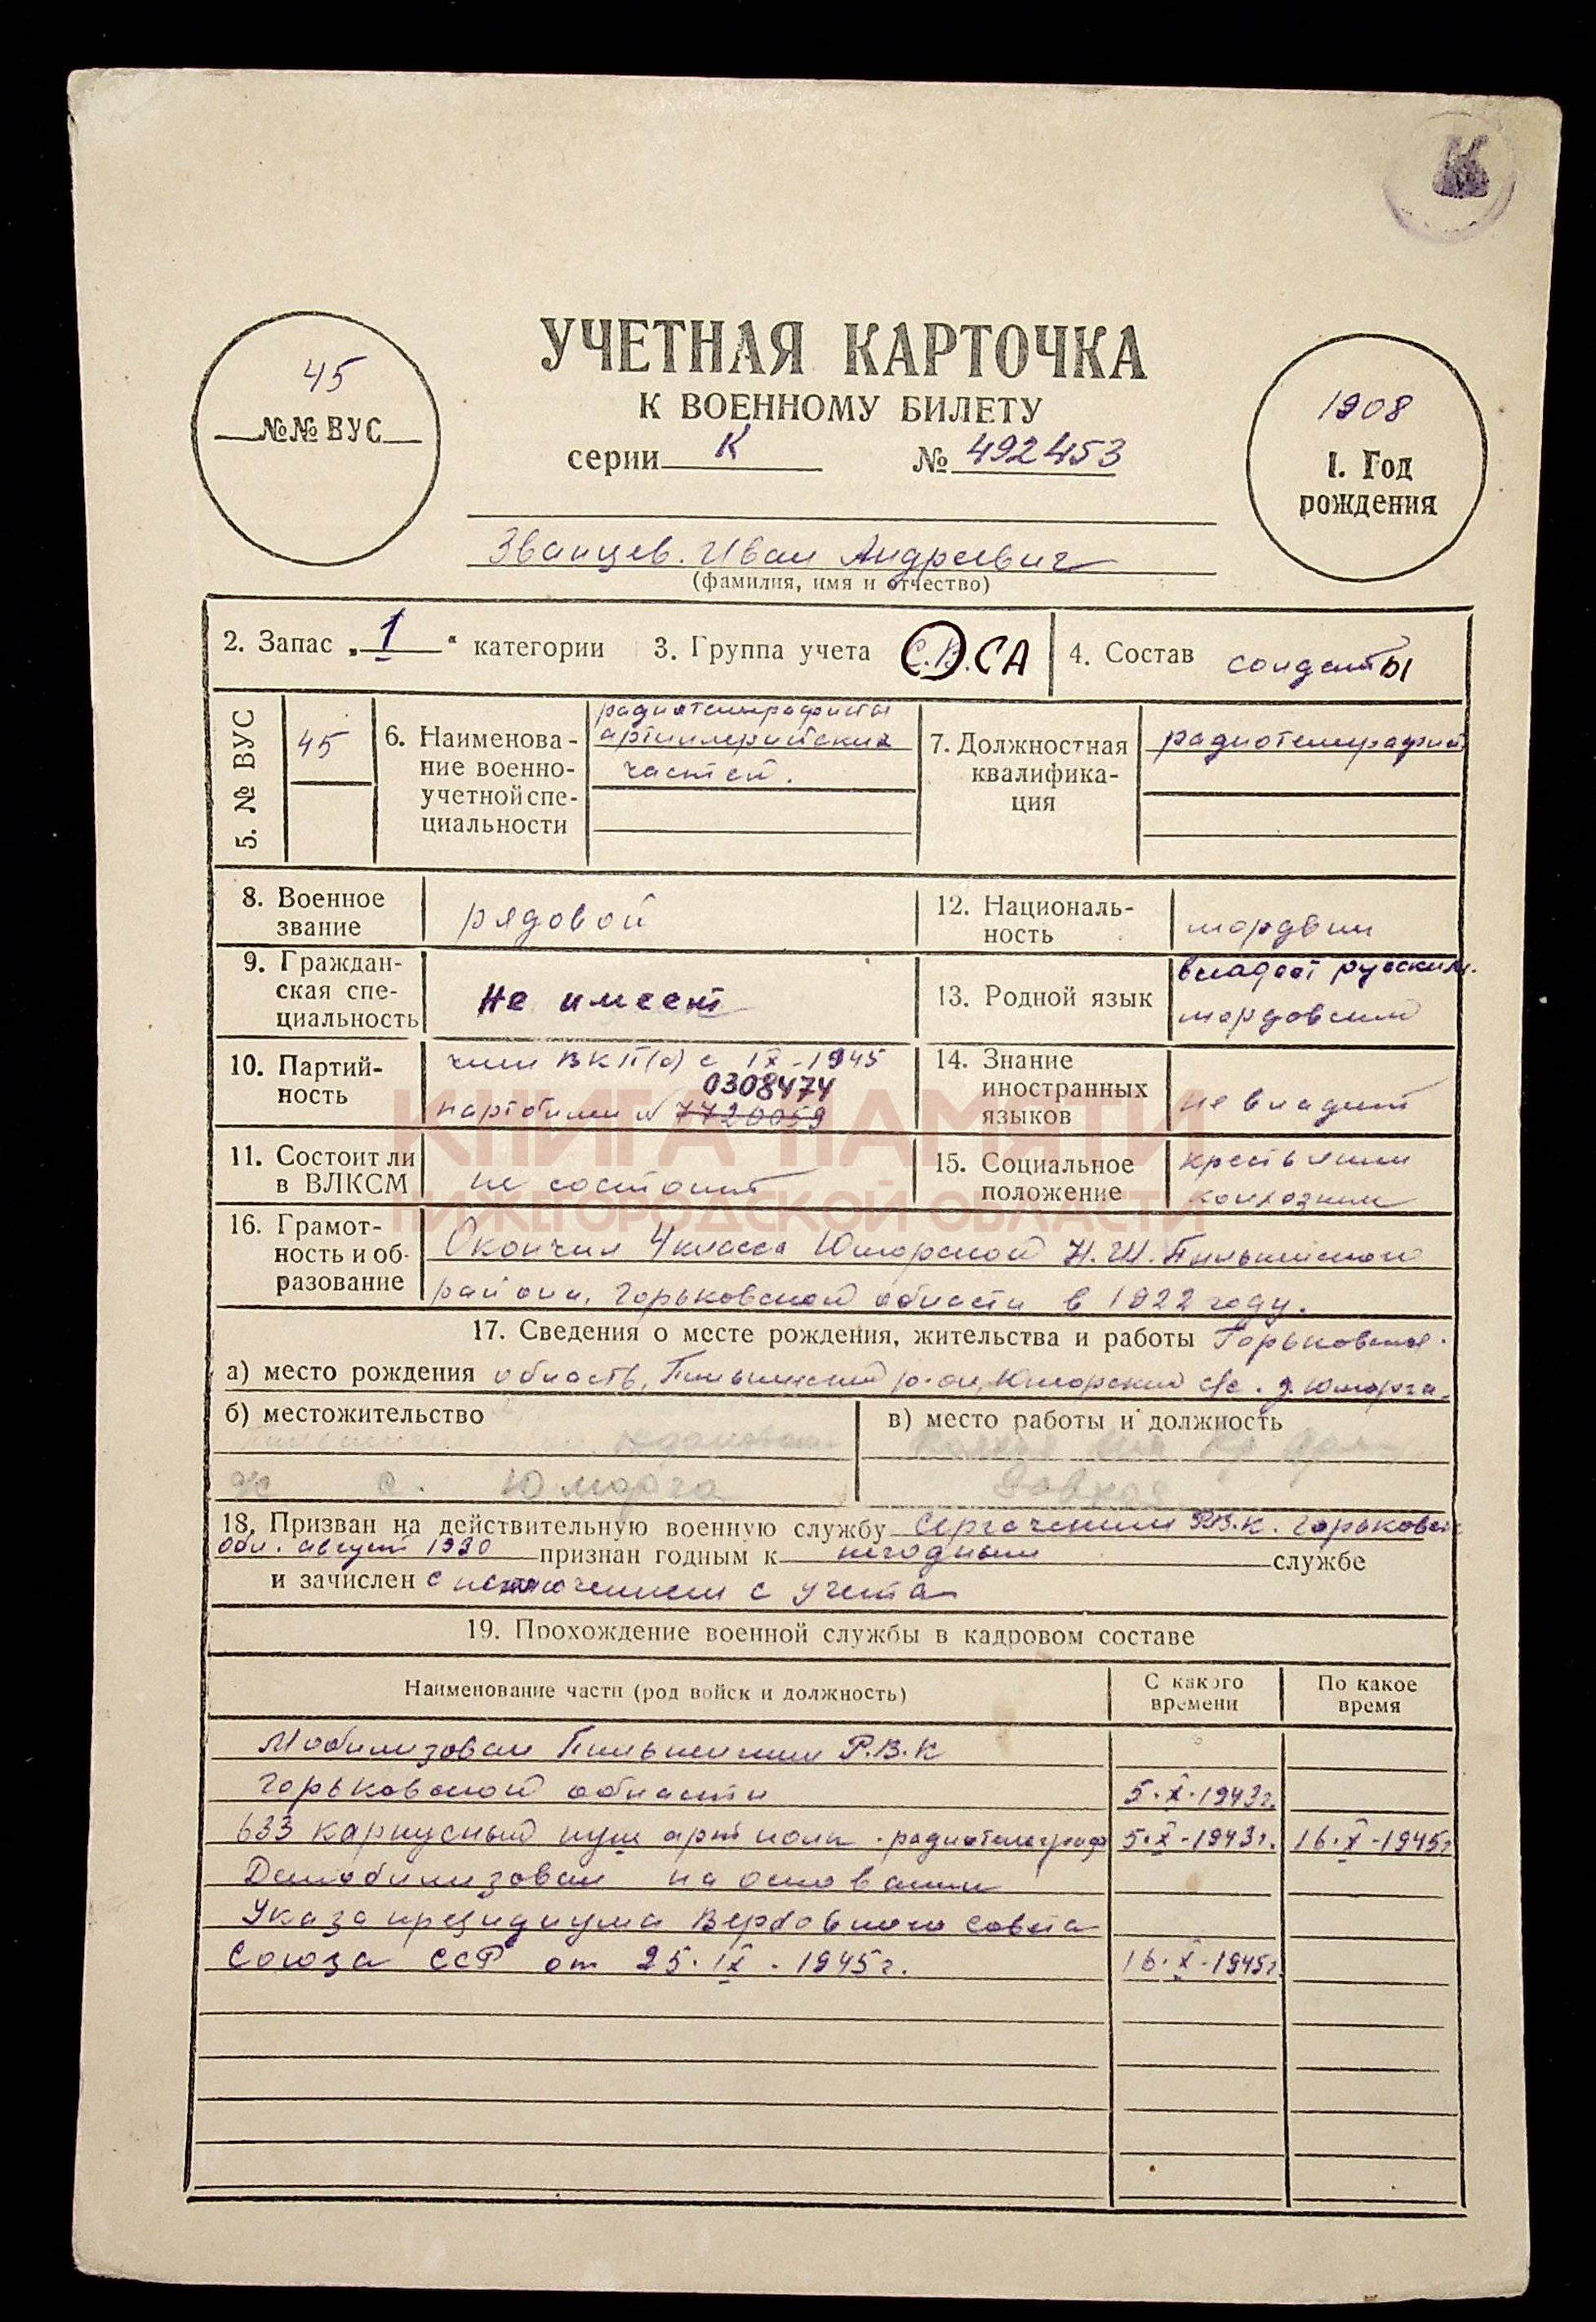 К
45
№№ ВУС
УЧЕТНАЯ КАРТОЧКА
К ВОЕННОМУ БИЛЕТУ
серии К № 492453
1908
1. Год
рождения
Званцев. Иван Андреевич
(фамилия, имя и отчество)
2. Запас „1“ категории 3. Группа учета С.В. СА 4. Состав солдаты
5. № ВУС 45
6. Наименова-
ние военно-
учетной спе-
циальности
радиотелеграфисты
артиллерийских
частей.
7. Должностная
квалифика-
ция
радиотелеграфист
8. Военное
звание
рядовой
12. Националь-
ность
мордвин
9. Граждан-
ская спе-
циальность
не имеет
13. Родной язык
владеет русским.
мордовский
10. Партий-
ность
член ВКП(б) с IX-1945
0308474
партбилет № 7720059
14. Знание
иностранных
языков
не владеет
КНИГА ПАМЯТИ
НИЖЕГОРОДСКОЙ ОБЛАСТИ
11. Состоит ли
в ВЛКСМ
не состоит
15. Социальное
положение
крестьянин
колхозник
16. Грамот-
ность и об-
разование
Окончил 4 класса Юморской Н.Ш. Пильнинского
района, Горьковской области в 1922 году.
17. Сведения о месте рождения, жительства и работы Горьковская
а) место рождения область, Пильнинский р-он, Юморский с/с. д. Юморга
б) местожительство
с. Юморга
в) место работы и должность
18. Призван на действительную военную службу Сергачским Р.В.К. Горьковск
обл. август 1930 признан годным к негодным службе
и зачислен с исключением с учета
19. Прохождение военной службы в кадровом составе
Наименование части (род войск и должность) С какого
времени По какое
время
Мобилизован Пильнинским Р.В.К
Горьковской области 5.X.1943г.
633 карпусный пуш арт полк. радиотелеграф 5.X-1943г. 16.X-1945г
Демобилизован на основании
Указа президиума Верховного Совета
Союза ССР от 25.IX.1945г. 16.X-1945г.